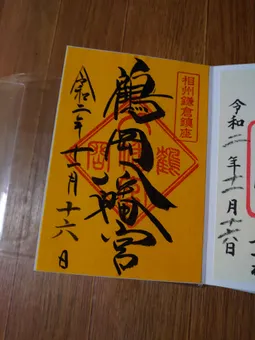 令和二年十一月十六日
相州鎌倉鎮座
鶴岡八幡宮
令和二年十一月十六日